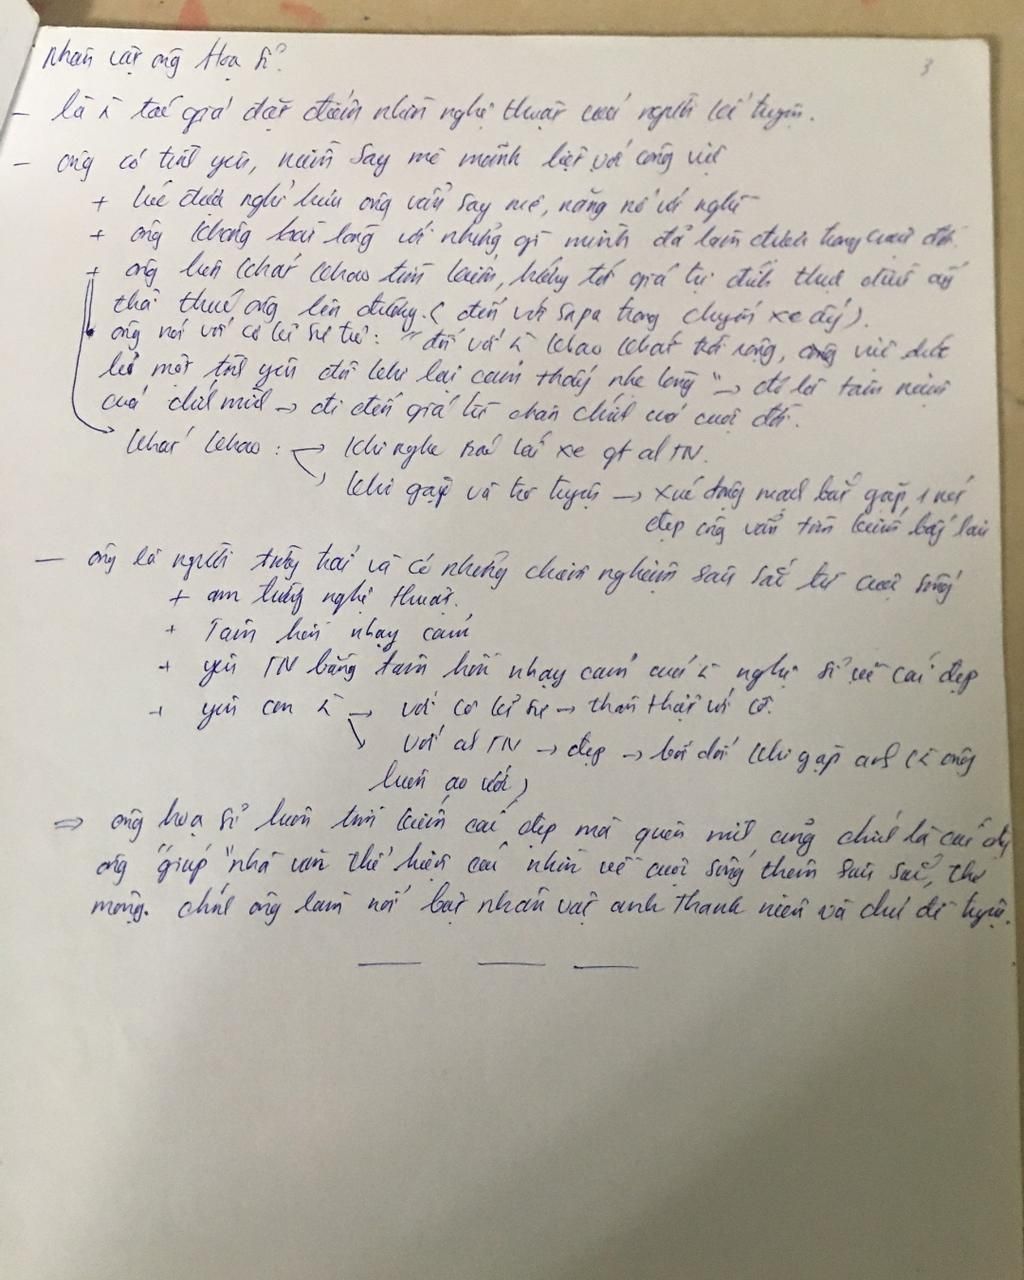 Nhân vật ông Hoạ sĩ.
3
- là n tác giả đặt điểm nhìn nghệ thuật của người kể truyện.
- ông có tình yêu, niềm say mê mãnh liệt với công việc
+ lúc được nghỉ hưu ông vẫn say mê, nặng nợ với nghề
+ ông không hài lòng với những gì mình đã làm được trong cuộc đời.
+ ông luôn khát khao tìm kiếm, hướng tới giá trị đích thực điều ấy
thôi thúc ông lên đường. (đến với Sapa trong chuyến xe đấy).
ông nói với cô kĩ sư trẻ: "đối với n khao khát trời rộng, công việc được
là một tình yêu đôi khi lại cảm thấy nhẹ lòng" → đó là tâm niệm
của chính mình → đi đến giá trị chân chính của cuộc đời.
khát khao: → khi nghe bác lái xe gt a TN.
khi gặp và trò truyện → xúc động mạnh bắt gặp 1 nét
đẹp ông vẫn tìm kiếm bấy lâu
- ông là người từng trải và có những chiêm nghiệm sâu sắc từ cuộc sống
+ am tường nghệ thuật.
+ Tâm hồn nhạy cảm
+ yêu TN bằng tâm hồn nhạy cảm của n nghệ sĩ về cái đẹp
+ yêu con n → với cô kĩ sư → thân thiết với cô.
với a TN → đẹp → bối rối khi gặp anh (n ông
luôn ao ước)
⇒ ông hoạ sĩ luôn tìm kiếm cái đẹp mà quên mình cũng chính là cái đẹp
ông "giúp" nhà văn thể hiện cái nhìn về cuộc sống thêm sâu sắc, thơ
mộng. chính ông làm nổi bật nhân vật anh thanh niên và chủ đề truyện.